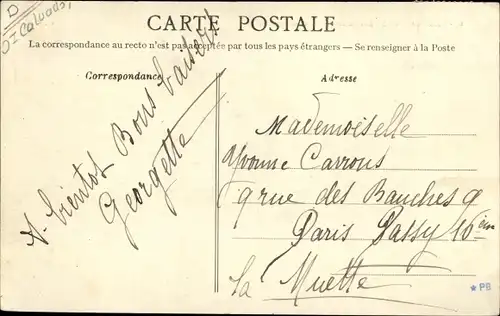 D
OI Calvados
CARTE POSTALE
La correspondance au recto n'est pas acceptée par tous les pays étrangers — Se renseigner à la Poste
Correspondance
Adresse
A bientot Bons baisers
Georgette
Mademoiselle
Yvonne Carrous
9 rue des Bauches 9
Paris Passy 16èm
La Muette
*PB